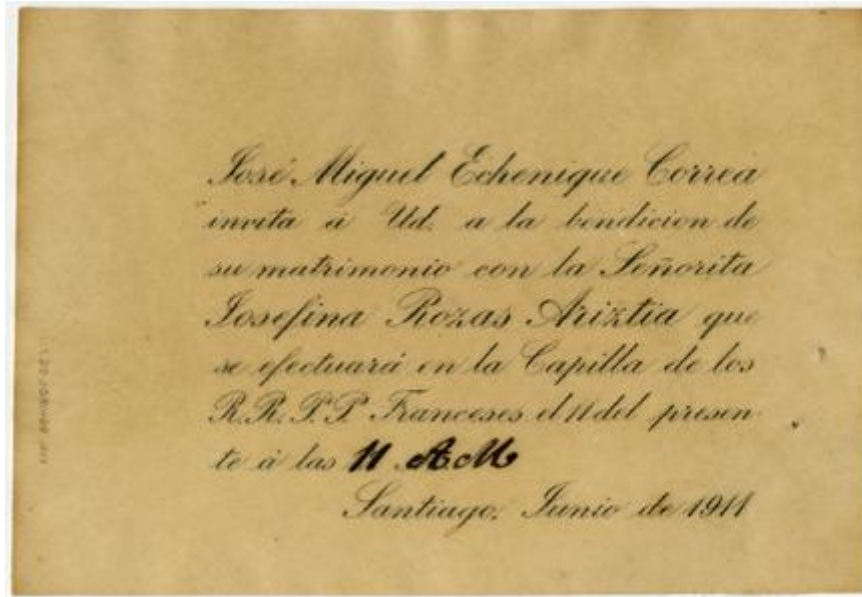 José Miguel Echenique Correa
invita á Ud. a la bendicion de
su matrimonio con la Señorita
Josefina Rozas Ariztia que
se efectuará en la Capilla de los
R.R. P.P. Franceses el 11 del presen-
te á las 11 AM
Santiago, Junio de 1911